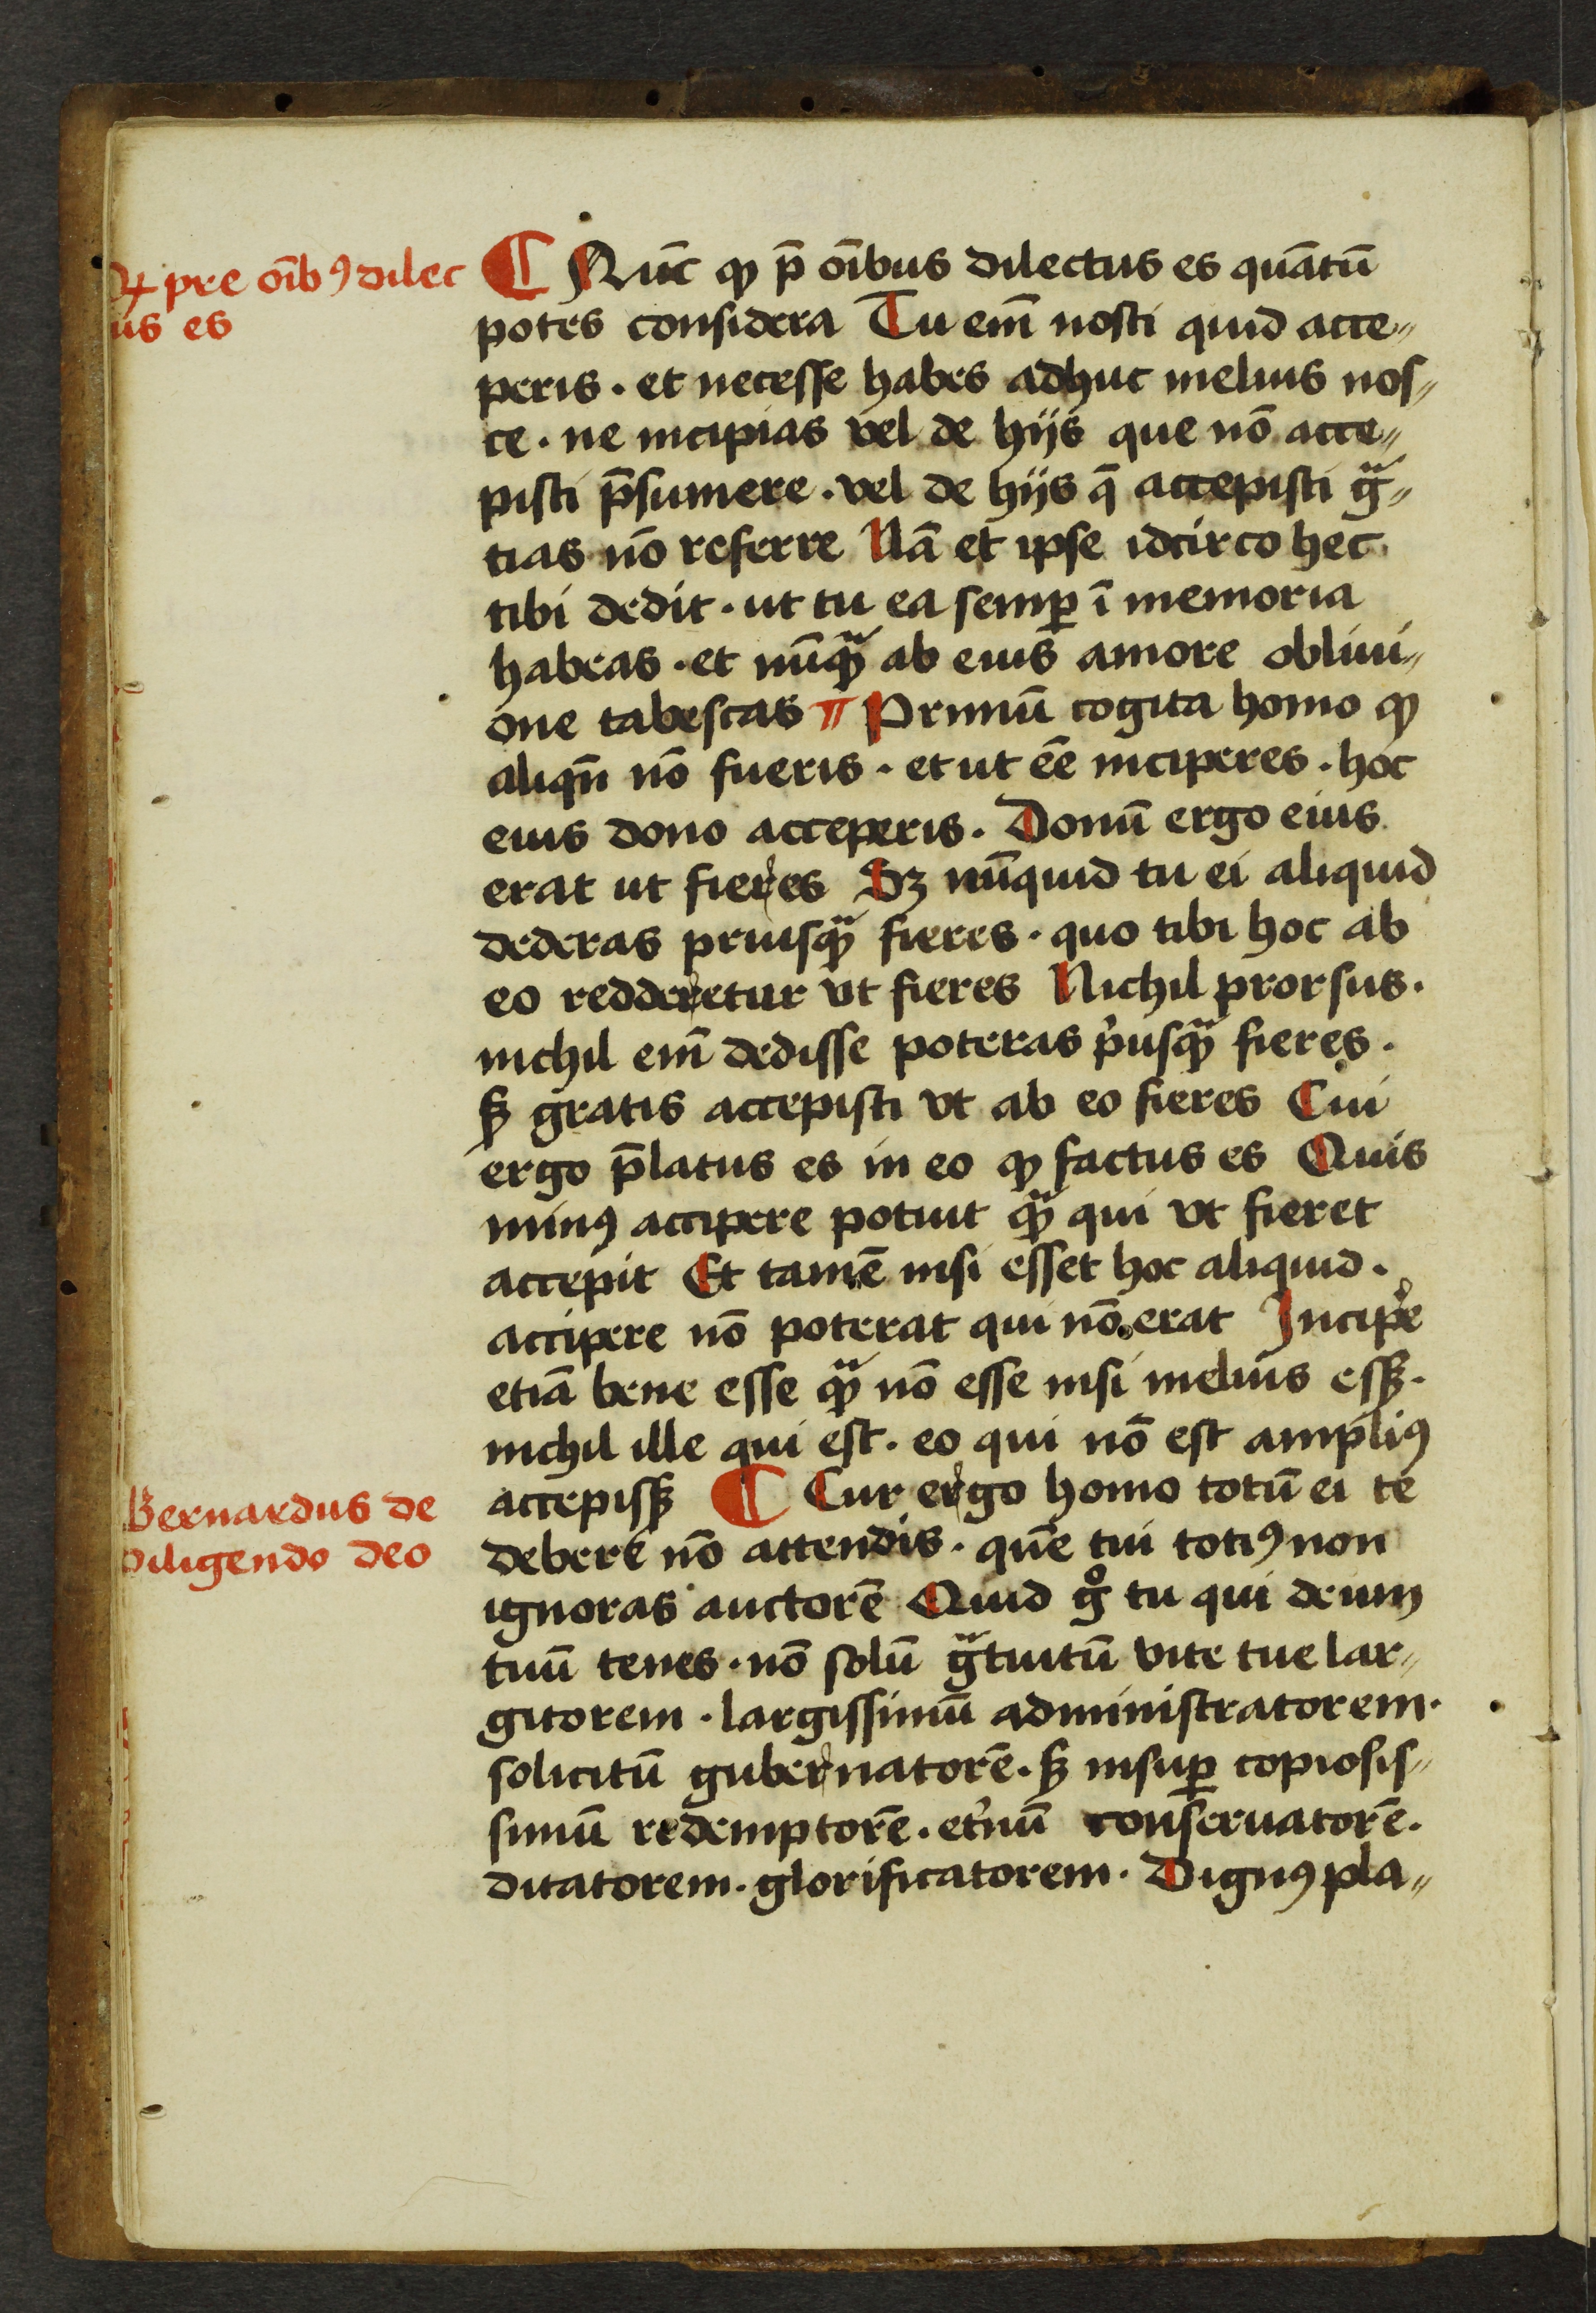 ꝙ pre oībꝰ dilec
us es
¶ Nūc ꝙ p̄ oībus dilectus es quātū
potes considera Tu em̄ nosti quid acce〃
peris · et necesse habes adhuc melius nos〃
ce · ne incipias vel de hijs que nō acce〃
pisti p̄sumere · vel de hijs q̄ accepisti gᵃ〃
tias nō referre Nā et ipse idcirco hec
tibi dedit · ut tu ea semꝑ ī memoria
habeas · et nūqᵃ̄ ab eius amore obliui〃
one tabescas ¶ Primū cogita homo ꝙ
aliqn̄ nō fueris · et ut ēē inciperes · hoc
eius dono acceperis · Donū ergo eius
erat ut fieres Sꝫ nūquid tu ei aliquid
dederas priusqᵃ̄ fieres · quo tibi hoc ab
eo redderetur vt fieres Nichil prorsus ·
nichil em̄ dedisse poteras pⁱusqᵃ̄ fieres ·
sꝫ gratis accepisti vt ab eo fieres Cui
ergo p̄latus es in eo ꝙ factus es Quis
minꝰ accipere potuit qᵃ̄ qui vt fieret
accepit Et tamē nisi esset hoc aliquid ·
accipere nō poterat qui nō erat Incipe̓
etiā bene esse qᵃ̄ nō esse nisi melius essꝫ ·
nichil ille qui est · eo qui nō est ampliꝰ
accepissꝫ ¶ Cur ergo homo totū ei te
debere nō attendis · quē tui totiꝰ non
ignoras auctorē Quid gͦ tu qui deum
tuū tenes · nō solū gᵃtuitū vite tue lar〃
gitorem · largissimū administratorem ·
solicitū gubernatorē · sꝫ insuꝑ copiosis〃
simū redemptorē · et̓nū conseruatorē ·
ditatorem · glorificatorem · Dignꝰ pla〃
Bernardus de
diligendo deo